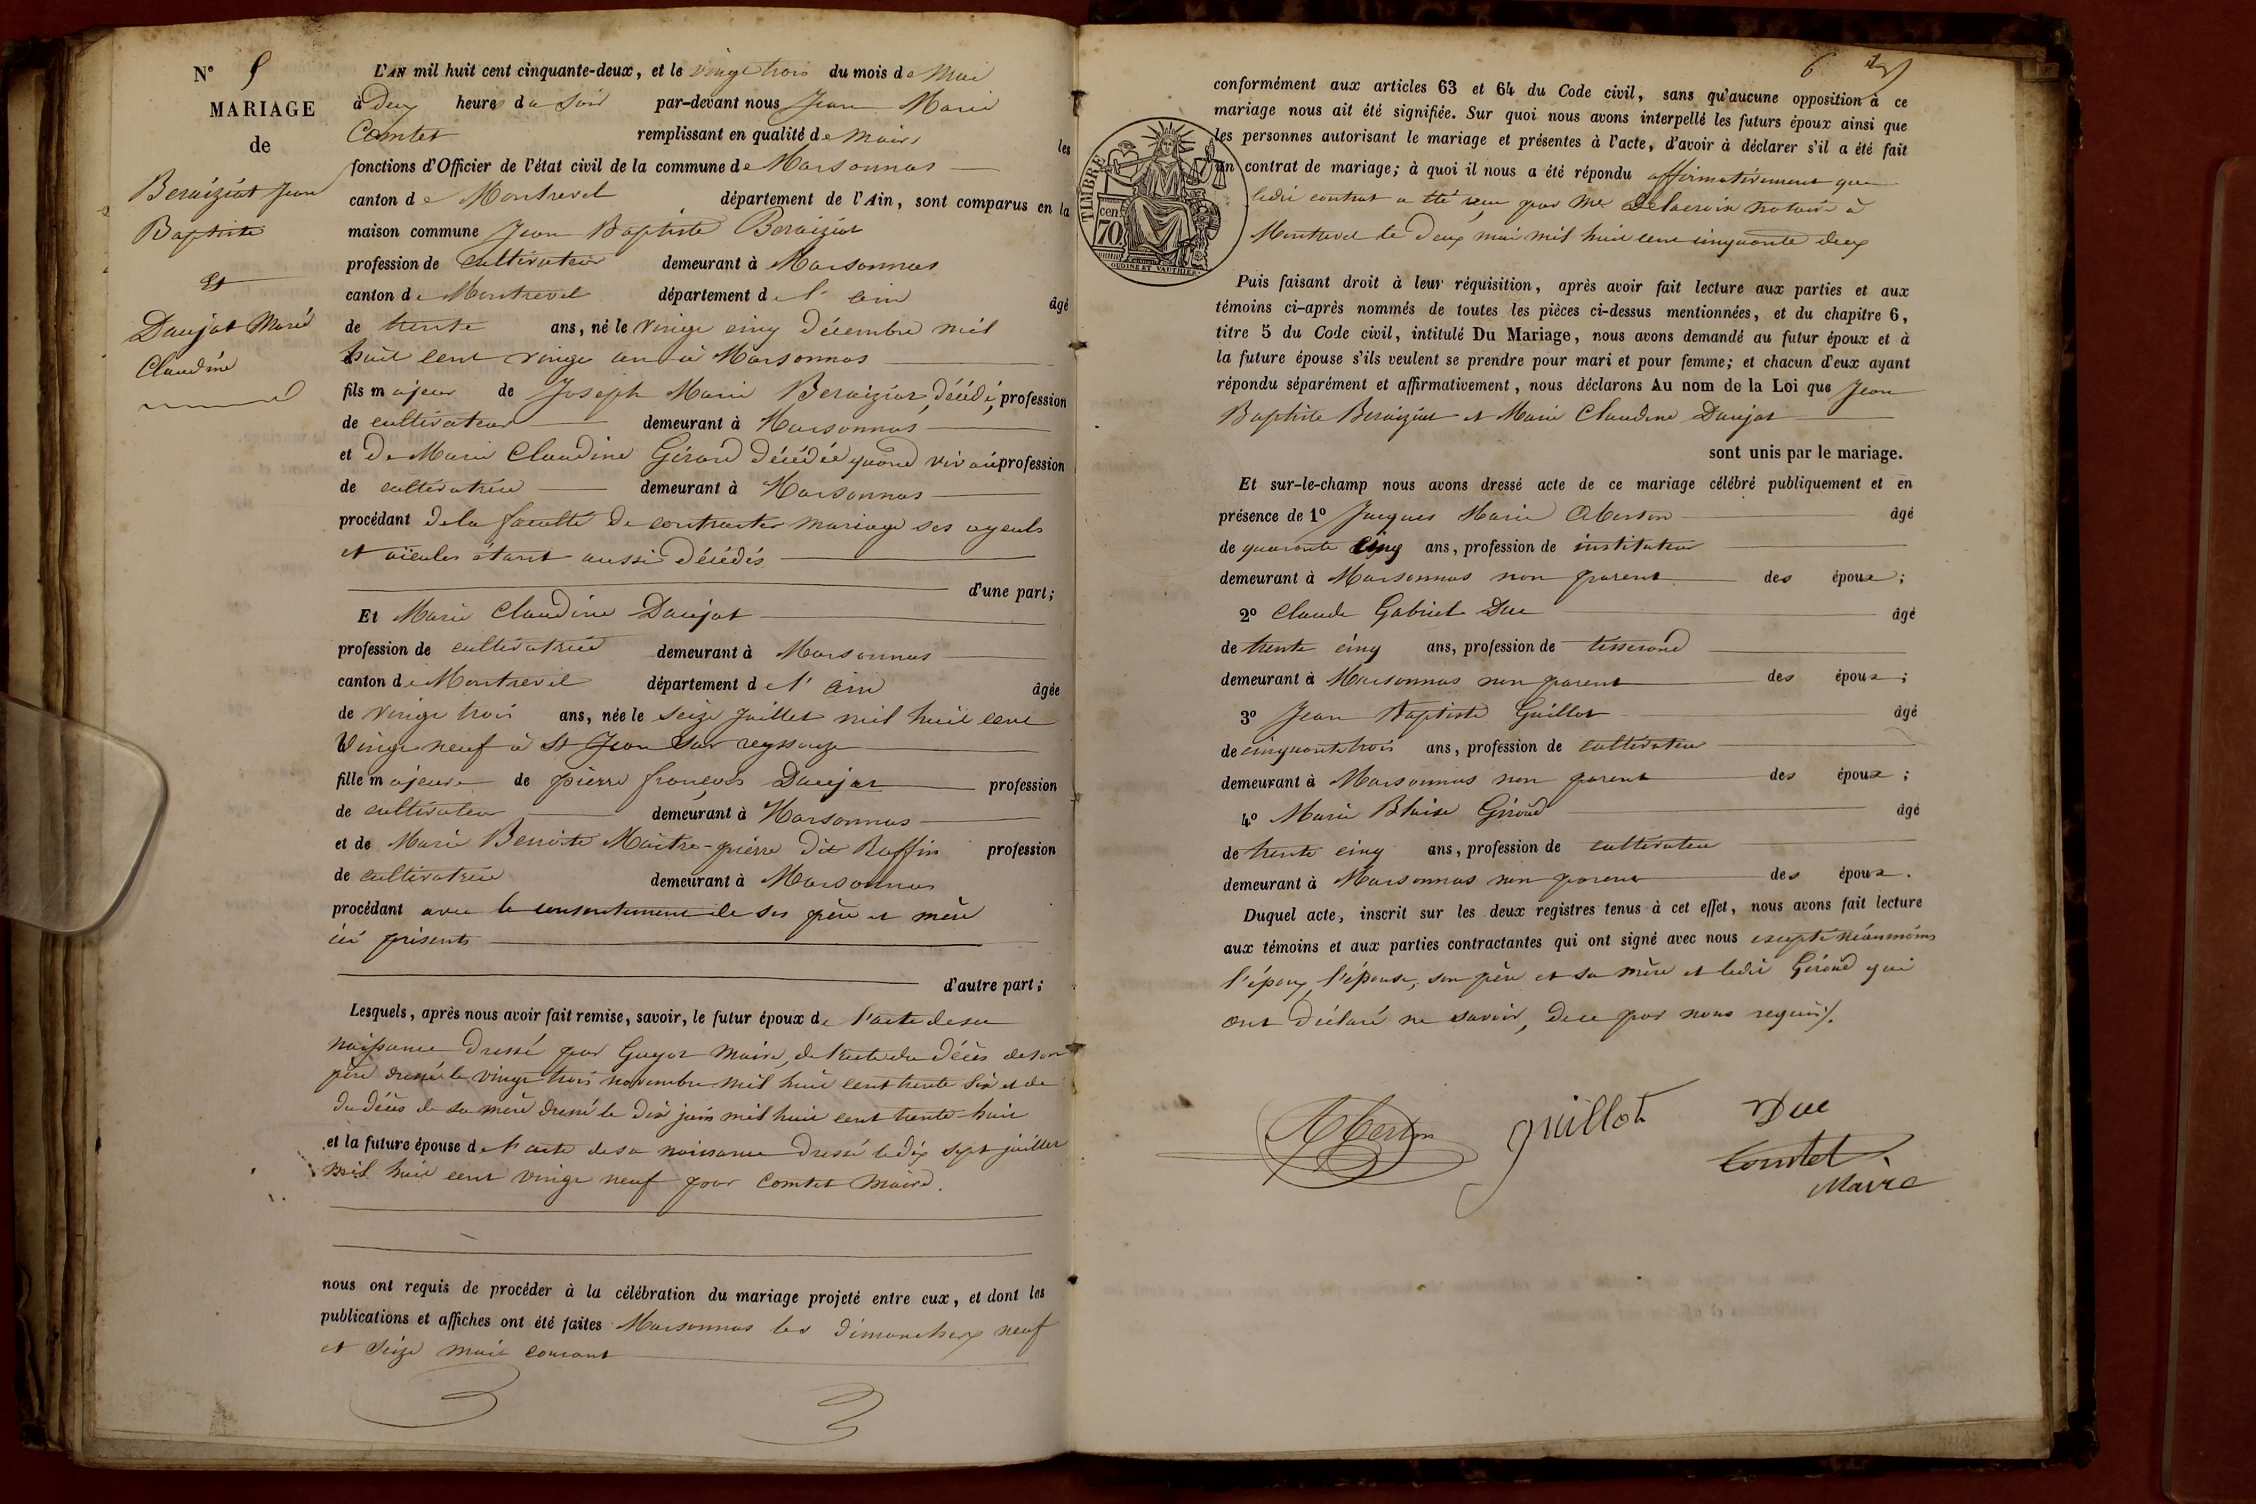 N° 5
MARIAGE
de
Beraiziat Jean
Baptiste
Et
Daujat Marie
Claudine
L'AN mil huit cent cinquante-deux, et le vingt trois du mois de Mai
à Deux heures du Soir par-devant nous Jean Marie
Comtet remplissant en qualité de Maire les
fonctions d'Officier de l'état civil de la commune de Marsonnas
canton de Montrevel département de l'Ain, sont comparus en la
maison commune Jean Baptiste Beraiziat
profession de cultivateur demeurant à Marsonnas
canton de Montrevel département de l'ain âgé
de trente ans, né le vingt cinq décembre mil
huit cent vingt un à Marsonnas
fils majeur de Joseph Marie Beraiziat, décédé, profession
de cultivateur demeurant à Marsonnas
et de Marie Claudine Géraud décédée quand vivait profession
de cultivatrice demeurant à Marsonnas
procédant de la faculté de contracter mariage ses ayeuls
et aieules étant aussi décédés
d'une part;
Et Marie Claudine Daujat
profession de cultivatrice demeurant à Marsonnas
canton de Montrevel département de l'ain âgée
de vingt trois ans, née le seize Juillet mil huit cent
vingt neuf à St Jean sur reyssouze
fille majeure de pierre françois Daujat profession
de cultivateur demeurant à Marsonnas
et de Marie Benoite Maitre-pierre dit Raffin profession
de cultivatrice demeurant à Marsonnas
procédant avec le consentement de ses père et mère
ici présents
d'autre part;
Lesquels, après nous avoir fait remise, savoir, le futur époux de l'acte de sa
naissance Dressé par Guyot Maire, de l'acte du décès de son
père dressé le vingt trois novembre mil huit cent trente six et de
du décès de sa mère dressé le dix juin mil huit cent trente huit
et la future épouse de l'acte de sa naissance dressé le dix sept juillet
mil huit cent vingt neuf par Comtet Maire.
nous ont requis de procéder à la célébration du mariage projeté entre eux, et dont les
publications et affiches ont été faites Marsonnas les dimanches neuf
et Seize mai courant
6
conformément aux articles 63 et 64 du Code civil, sans qu'aucune opposition à ce
mariage nous ait été signifiée. Sur quoi nous avons interpellé les futurs époux ainsi que
les personnes autorisant le mariage et présentes à l'acte, d'avoir à déclarer s'il a été fait
un contrat de mariage; à quoi il nous a été répondu affirmativement que
ledit contrat a été reçu par Me Delacroix notaire à
Montrevel le Deux mai mil huit cent cinquante deux
TIMBRE
70 cen
OUDINE ET VAUTHIER
Puis faisant droit à leur réquisition, après avoir fait lecture aux parties et aux
témoins ci-après nommés de toutes les pièces ci-dessus mentionnées, et du chapitre 6,
titre 5 du Code civil, intitulé Du Mariage, nous avons demandé au futur époux et à
la future épouse s'ils veulent se prendre pour mari et pour femme; et chacun d'eux ayant
répondu séparément et affirmativement, nous déclarons Au nom de la Loi que Jean
Baptiste Beraiziat et Marie Claudine Daujat
sont unis par le mariage.
Et sur-le-champ nous avons dressé acte de ce mariage célébré publiquement et en
présence de 1° Jacques Marie Alberton âgé
de quarante cinq ans, profession de instituteur
demeurant à Marsonnas non parent des époux;
2° Claude Gabriel Duc âgé
de trente cinq ans, profession de tisserand
demeurant à Marsonnas non parent des époux;
3° Jean Baptiste Guillot âgé
de cinquante trois ans, profession de cultivateur
demeurant à Marsonnas non parent des époux;
4° Marie Blaise Giroud âgé
de trente cinq ans, profession de cultivateur
demeurant à Marsonnas non parent des époux.
Duquel acte, inscrit sur les deux registres tenus à cet effet, nous avons fait lecture
aux témoins et aux parties contractantes qui ont signé avec nous excepté néanmoins
l'époux, l'épouse, son père et sa mère et ledit Géroud qui
ont déclaré ne savoir, de ce par nous requis.
Alberton
guillot
Duc
Comtet
Maire